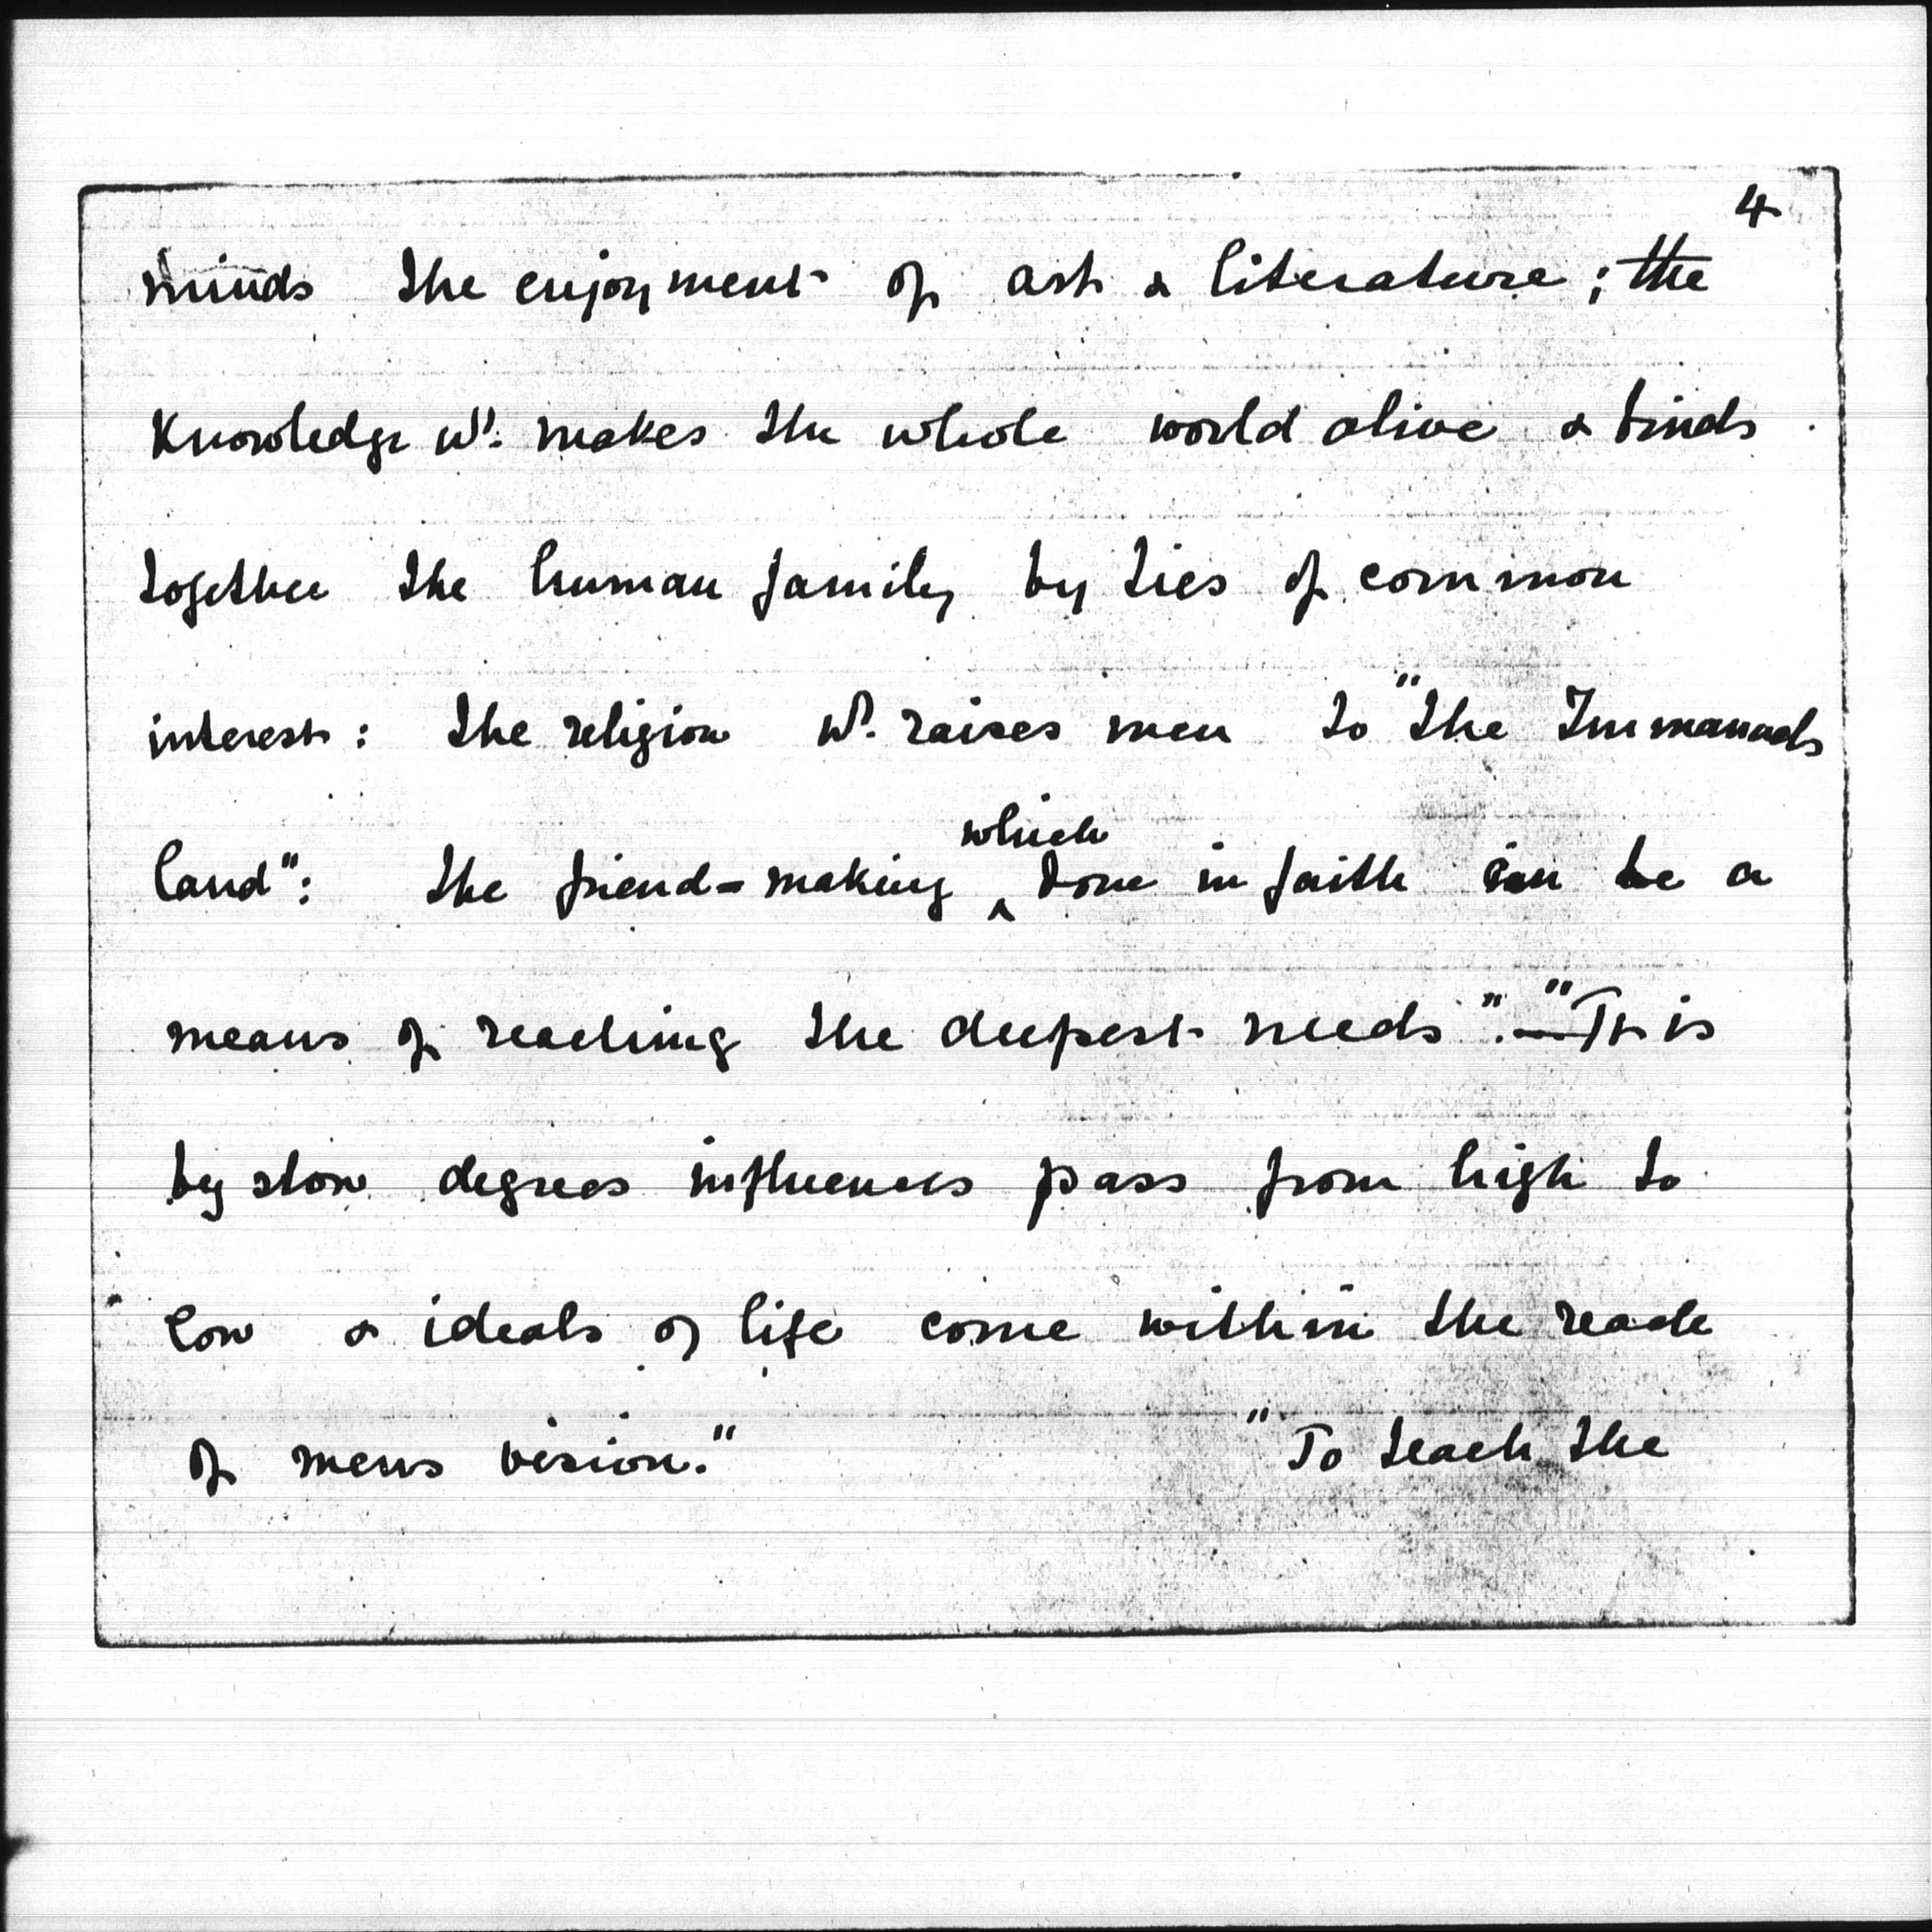 4
minds the enjoyment of art & literature; the
knowledge wh. makes the whole world alive & binds
together the human family by ties of common
interest: the religion wh. raises men to "the Immanuels
land": the friend-making which done in faith can be a
means of reaching the deepest needs".—"It is
by slow degrees influences pass from high to
low & ideals of life come within the reach
of mens vision." "To teach the